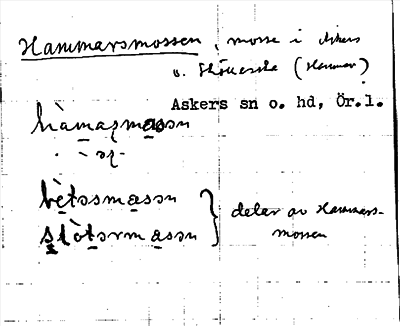 Hammarsmossen, mosse i Askers
o. Sköllersta (Hammar)
Askers sn o. hd, Ör.l.
hàmaṣmassn
bètssmassn
slòtsrmassn
delar av Hammars-
mossen